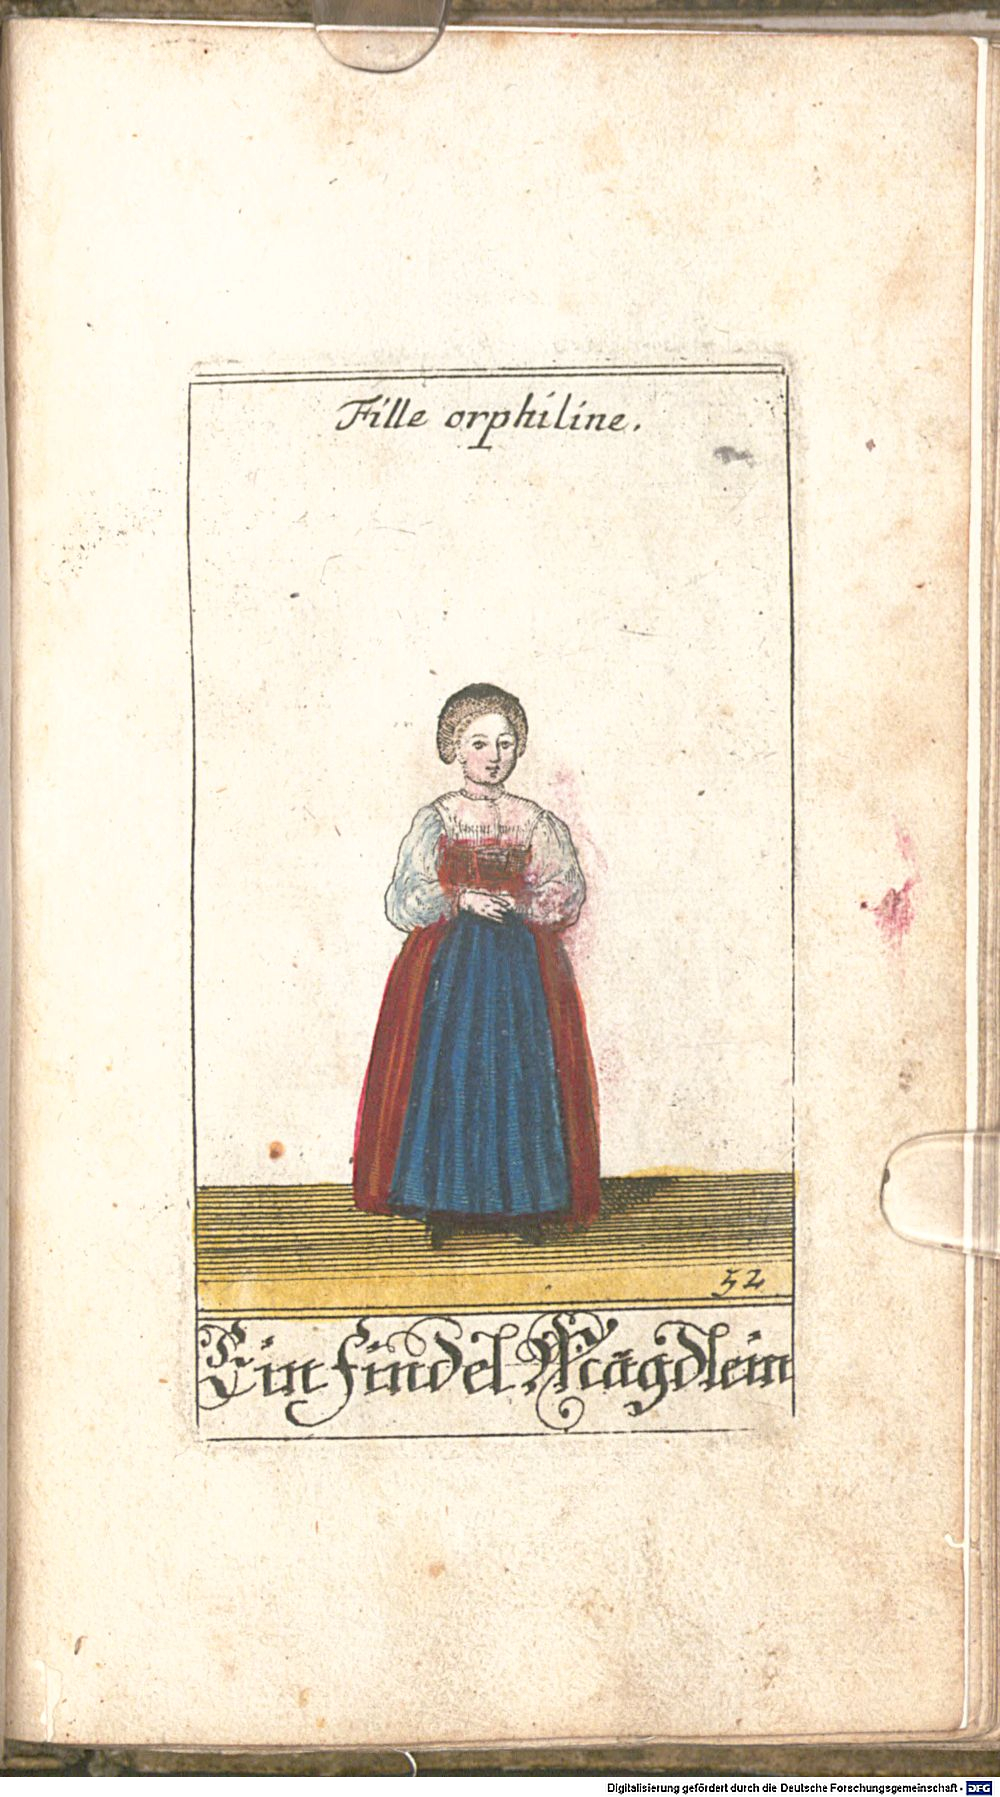 Fille orphiline.
52
Ein findel Mägdlein
Digitalisierung gefördert durch die Deutsche Forschungsgemeinschaft - DFG